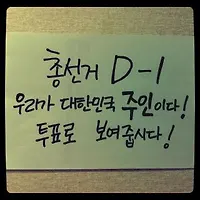 총선거 D-1
우리가 대한민국 주인이다!
투표로 보여줍시다!